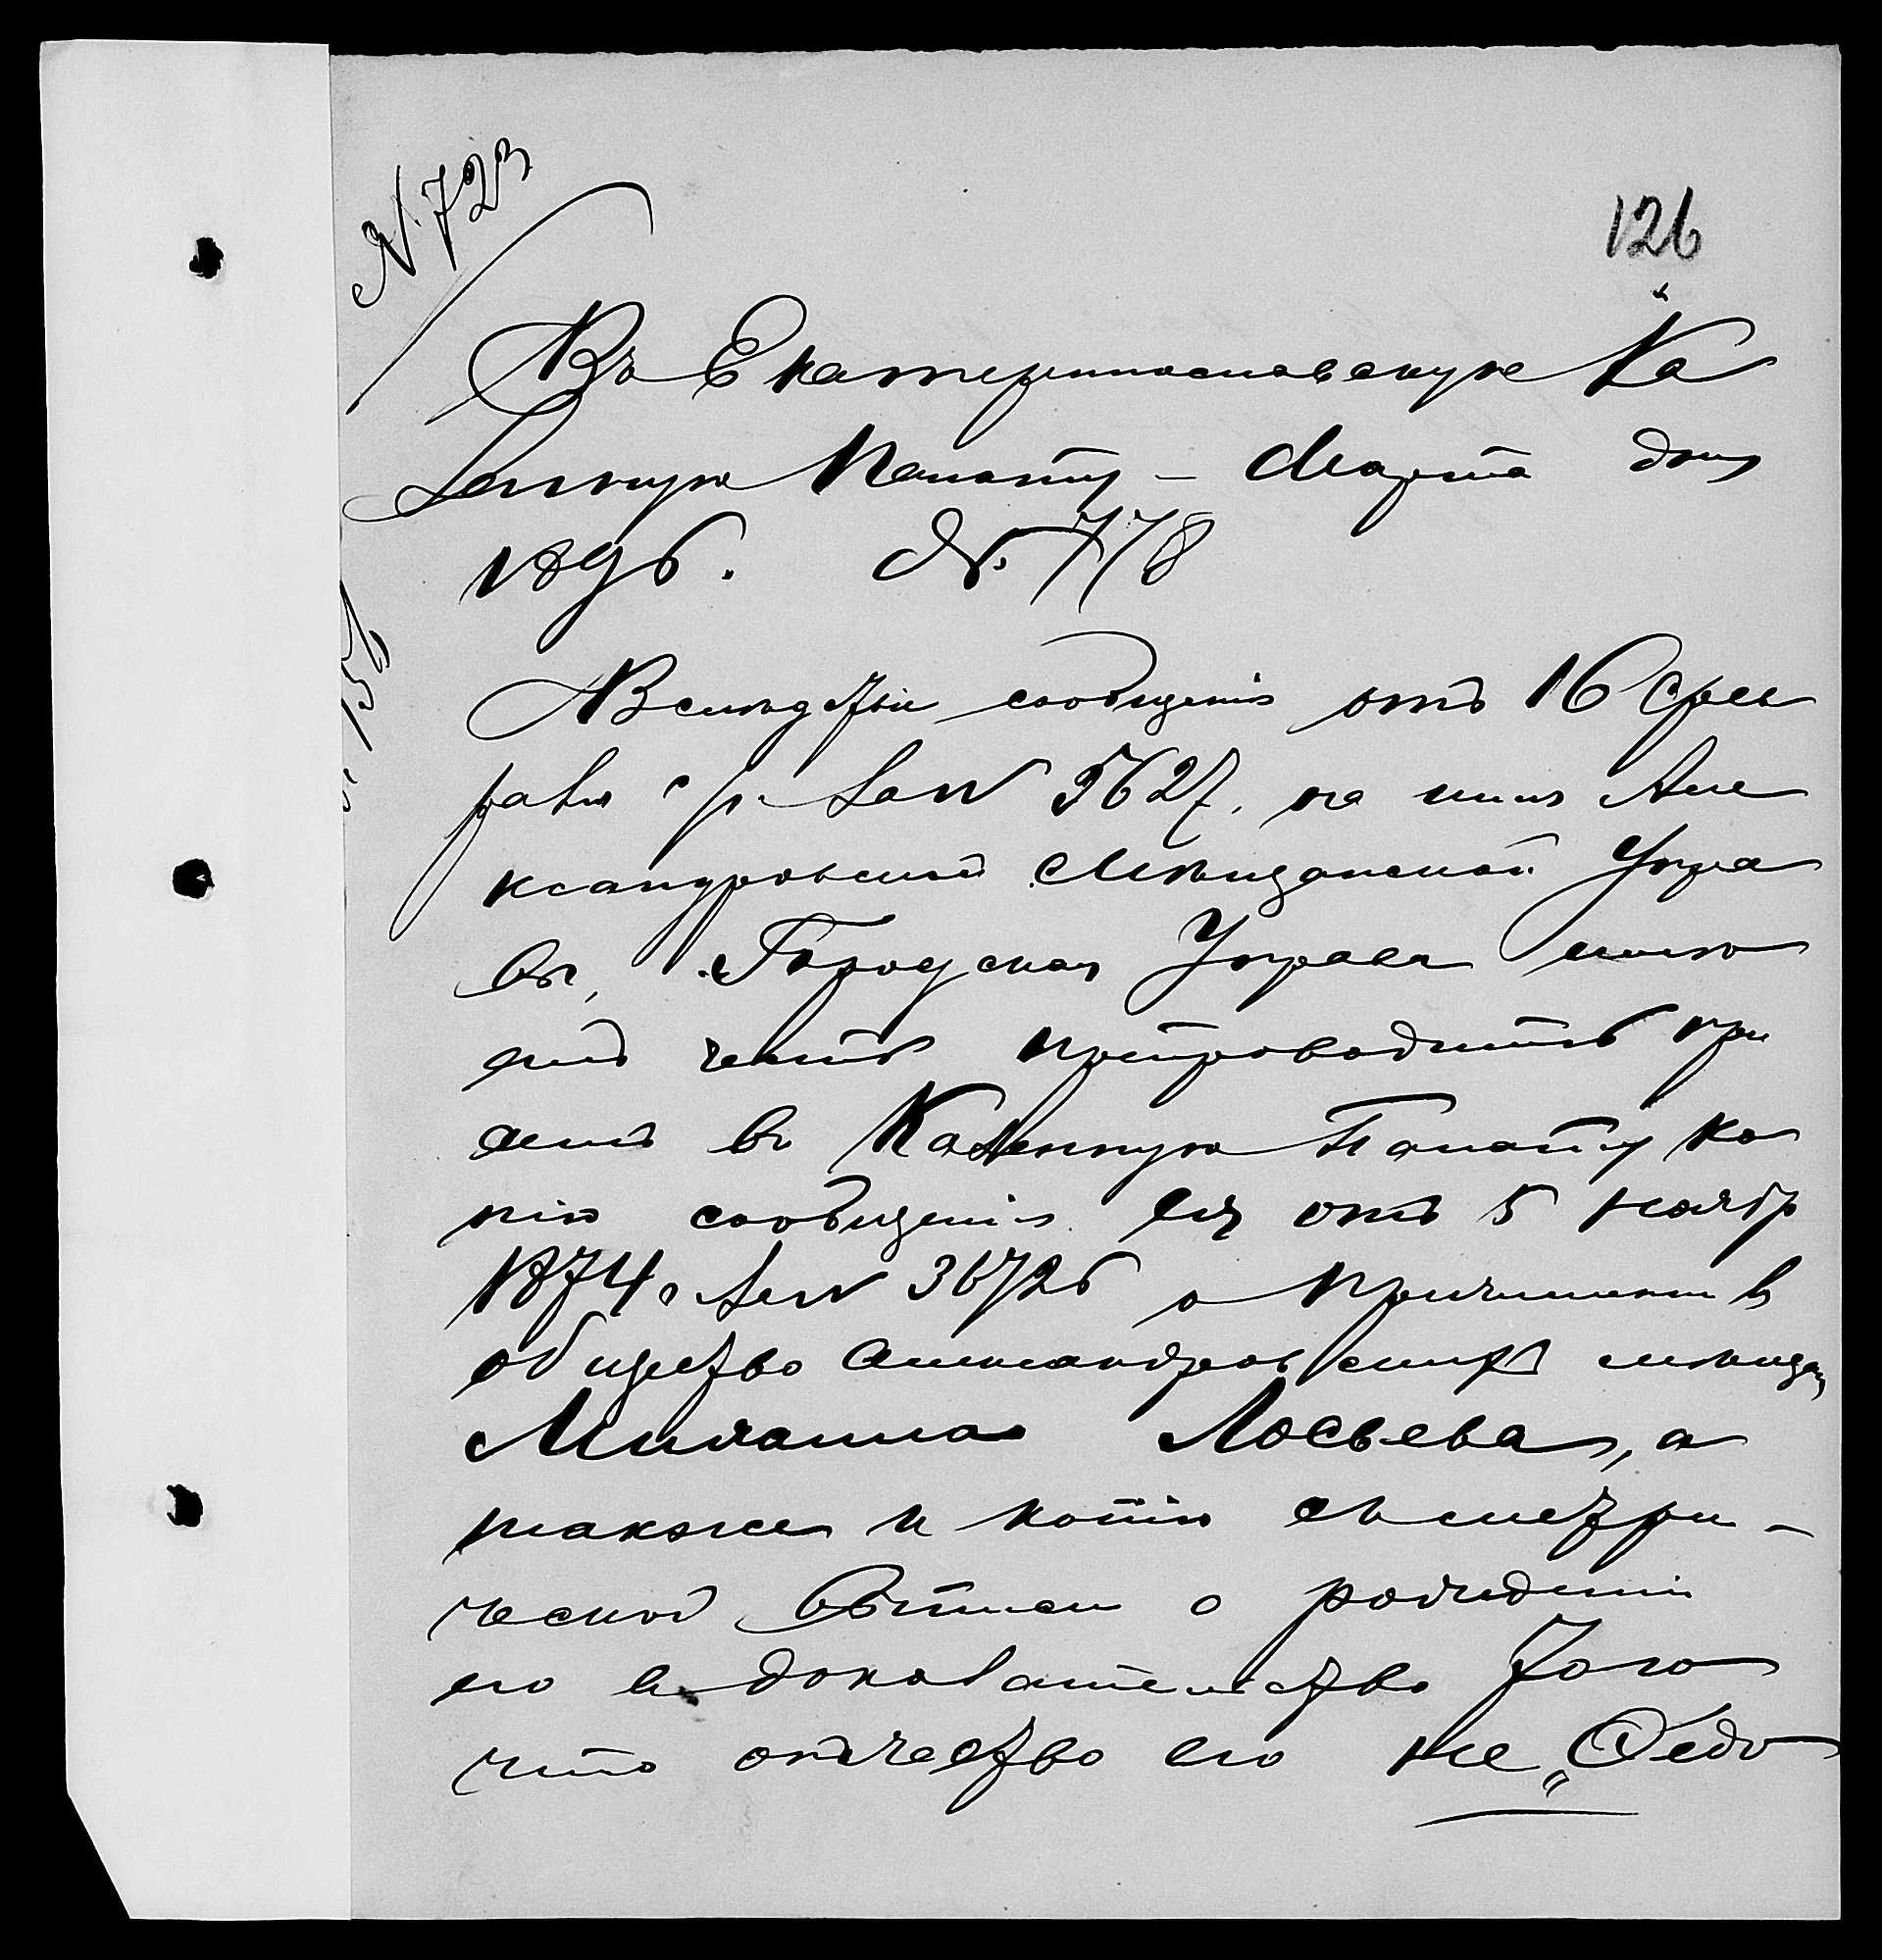 N. 723
126
Въ Екатеринославскую Ка
зенную Палату – Марта дня
1896. № 778
Вследствіе сообщенія отъ 16 Фев
раля с/г. за N 5627, на имя Але
ксандровской Мѣщанской Упра
вы, Городская Управа имѣ
етъ честь препроводить при
семъ въ Казенную Палату ко
пію сообщенія ея отъ 5 ноябр
1874 г. за N 36726 о причисленіи въ
общество Александровскихъ мѣщан
Михаила Лосьева, а
также и копію съ метри-
ческой выписи о рожденіи
его въ доказательство того
что отчество его не „Федо